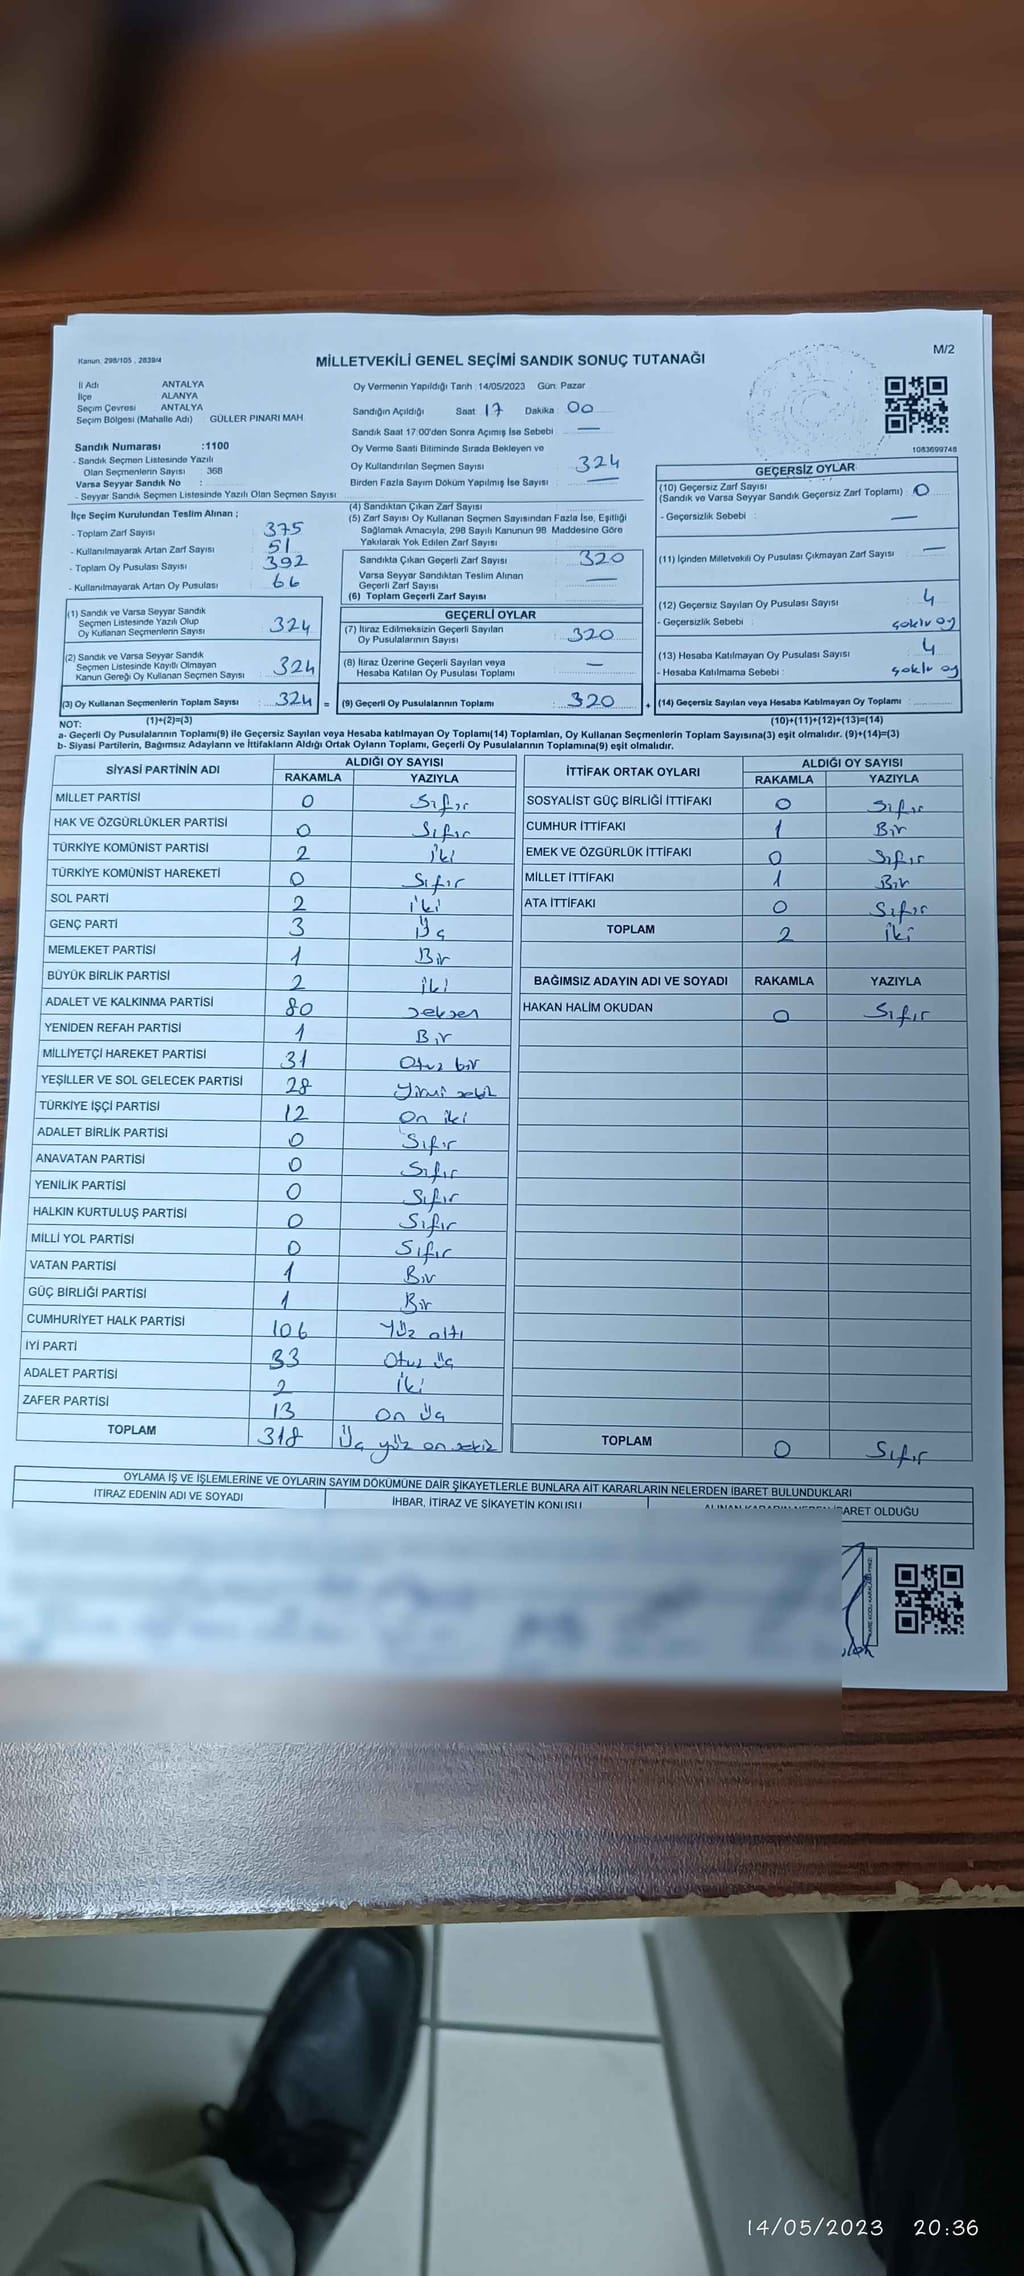 Kanun, 298/105 , 2839/4
MİLLETVEKİLİ GENEL SEÇİMİ SANDIK SONUÇ TUTANAĞI
M/2
İl Adı ANTALYA
İlçe ALANYA
Seçim Çevresi ANTALYA
Seçim Bölgesi (Mahalle Adı) GÜLLER PINARI MAH.
Sandık Numarası :1100
- Sandık Seçmen Listesinde Yazılı
Olan Seçmenlerin Sayısı : 368
Varsa Seyyar Sandık No :
- Seyyar Sandık Seçmen Listesinde Yazılı Olan Seçmen Sayısı
Oy Vermenin Yapıldığı Tarih :14/05/2023 Gün: Pazar
Sandığın Açıldığı Saat 17 Dakika 00
Sandık Saat 17:00'den Sonra Açımış İse Sebebi —
Oy Verme Saati Bitiminde Sırada Bekleyen ve
Oy Kullandırılan Seçmen Sayısı 324
Birden Fazla Sayım Döküm Yapılmış İse Sayısı —
1083699748
İlçe Seçim Kurulundan Teslim Alınan ;
- Toplam Zarf Sayısı : 375
- Kullanılmayarak Artan Zarf Sayısı : 51
- Toplam Oy Pusulası Sayısı : 392
- Kullanılmayarak Artan Oy Pusulası : 66
(1) Sandık ve Varsa Seyyar Sandık
Seçmen Listesinde Yazılı Olup
Oy Kullanan Seçmenlerin Sayısı : 324
(2) Sandık ve Varsa Seyyar Sandık
Seçmen Listesinde Kayıtlı Olmayan
Kanun Gereği Oy Kullanan Seçmen Sayısı : 324
(3) Oy Kullanan Seçmenlerin Toplam Sayısı : 324 =
(4) Sandıktan Çıkan Zarf Sayısı :
(5) Zarf Sayısı Oy Kullanan Seçmen Sayısından Fazla İse, Eşitliği
Sağlamak Amacıyla, 298 Sayılı Kanunun 98 Maddesine Göre
Yakılarak Yok Edilen Zarf Sayısı
Sandıkta Çıkan Geçerli Zarf Sayısı : 320
Varsa Seyyar Sandıktan Teslim Alınan
Geçerli Zarf Sayısı —
(6) Toplam Geçerli Zarf Sayısı
GEÇERLİ OYLAR
(7) İtiraz Edilmeksizin Geçerli Sayılan
Oy Pusulalarının Sayısı : 320
(8) İtiraz Üzerine Geçerli Sayılan veya
Hesaba Katılan Oy Pusulası Toplamı : —
(9) Geçerli Oy Pusulalarının Toplamı : 320 +
GEÇERSİZ OYLAR
(10) Geçersiz Zarf Sayısı
(Sandık ve Varsa Seyyar Sandık Geçersiz Zarf Toplamı) : 0
- Geçersizlik Sebebi : —
(11) İçinden Milletvekili Oy Pusulası Çıkmayan Zarf Sayısı : —
(12) Geçersiz Sayılan Oy Pusulası Sayısı : 4
- Geçersizlik Sebebi : çoklu oy
(13) Hesaba Katılmayan Oy Pusulası Sayısı : 4
- Hesaba Katılmama Sebebi : çoklu oy
(14) Geçersiz Sayılan veya Hesaba Katılmayan Oy Toplamı :
NOT: (1)+(2)=(3) (10)+(11)+(12)+(13)=(14)
a- Geçerli Oy Pusulalarının Toplamı(9) ile Geçersiz Sayılan veya Hesaba katılmayan Oy Toplamı(14) Toplamları, Oy Kullanan Seçmenlerin Toplam Sayısına(3) eşit olmalıdır. (9)+(14)=(3)
b- Siyasi Partilerin, Bağımsız Adayların ve İttifakların Aldığı Ortak Oyların Toplamı, Geçerli Oy Pusulalarının Toplamına(9) eşit olmalıdır.
SİYASİ PARTİNİN ADI ALDIĞI OY SAYISI
RAKAMLA YAZIYLA
MİLLET PARTİSİ 0 Sıfır
HAK VE ÖZGÜRLÜKLER PARTİSİ 0 Sıfır
TÜRKİYE KOMÜNİST PARTİSİ 2 iki
TÜRKİYE KOMÜNİST HAREKETİ 0 Sıfır
SOL PARTİ 2 iki
GENÇ PARTİ 3 Üç
MEMLEKET PARTİSİ 1 Bir
BÜYÜK BİRLİK PARTİSİ 2 iki
ADALET VE KALKINMA PARTİSİ 80 seksen
YENİDEN REFAH PARTİSİ 1 Bir
MİLLİYETÇİ HAREKET PARTİSİ 31 Otuz bir
YEŞİLLER VE SOL GELECEK PARTİSİ 28 yirmi sekiz
TÜRKİYE İŞÇİ PARTİSİ 12 On iki
ADALET BİRLİK PARTİSİ 0 Sıfır
ANAVATAN PARTİSİ 0 Sıfır
YENİLİK PARTİSİ 0 Sıfır
HALKIN KURTULUŞ PARTİSİ 0 Sıfır
MİLLİ YOL PARTİSİ 0 Sıfır
VATAN PARTİSİ 1 Bir
GÜÇ BİRLİĞİ PARTİSİ 1 Bir
CUMHURİYET HALK PARTİSİ 106 Yüz altı
İYİ PARTİ 33 Otuz üç
ADALET PARTİSİ 2 iki
ZAFER PARTİSİ 13 On üç
TOPLAM 318 Üç yüz on sekiz
İTTİFAK ORTAK OYLARI ALDIĞI OY SAYISI
RAKAMLA YAZIYLA
SOSYALİST GÜÇ BİRLİĞİ İTTİFAKI 0 Sıfır
CUMHUR İTTİFAKI 1 Bir
EMEK VE ÖZGÜRLÜK İTTİFAKI 0 Sıfır
MİLLET İTTİFAKI 1 Bir
ATA İTTİFAKI 0 Sıfır
TOPLAM 2 iki
BAĞIMSIZ ADAYIN ADI VE SOYADI RAKAMLA YAZIYLA
HAKAN HALİM OKUDAN 0 Sıfır
TOPLAM 0 Sıfır
OYLAMA İŞ VE İŞLEMLERİNE VE OYLARIN SAYIM DÖKÜMÜNE DAİR ŞİKAYETLERLE BUNLARA AİT KARARLARIN NELERDEN İBARET BULUNDUKLARI
İTİRAZ EDENİN ADI VE SOYADI İHBAR, İTİRAZ VE ŞİKAYETİN KONUSU ALINAN KARARIN NEDEN İBARET OLDUĞU
14/05/2023 20:36